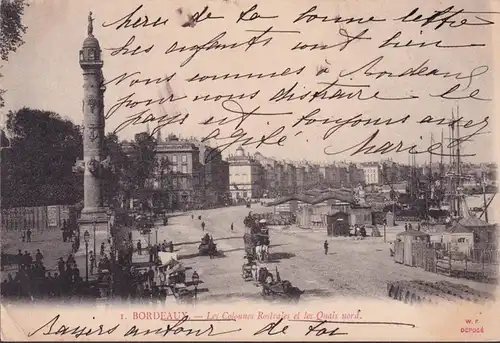 Merci de ta bonne lettre
les enfants vont bien
nous sommes à Bordeaux
pour nous distraire le
pays est toujours
agité Marie
1. BORDEAUX. — Les Colonnes Rostrales et les Quais nord.
W. F.
DÉPOSÉ
Baisers autour de toi